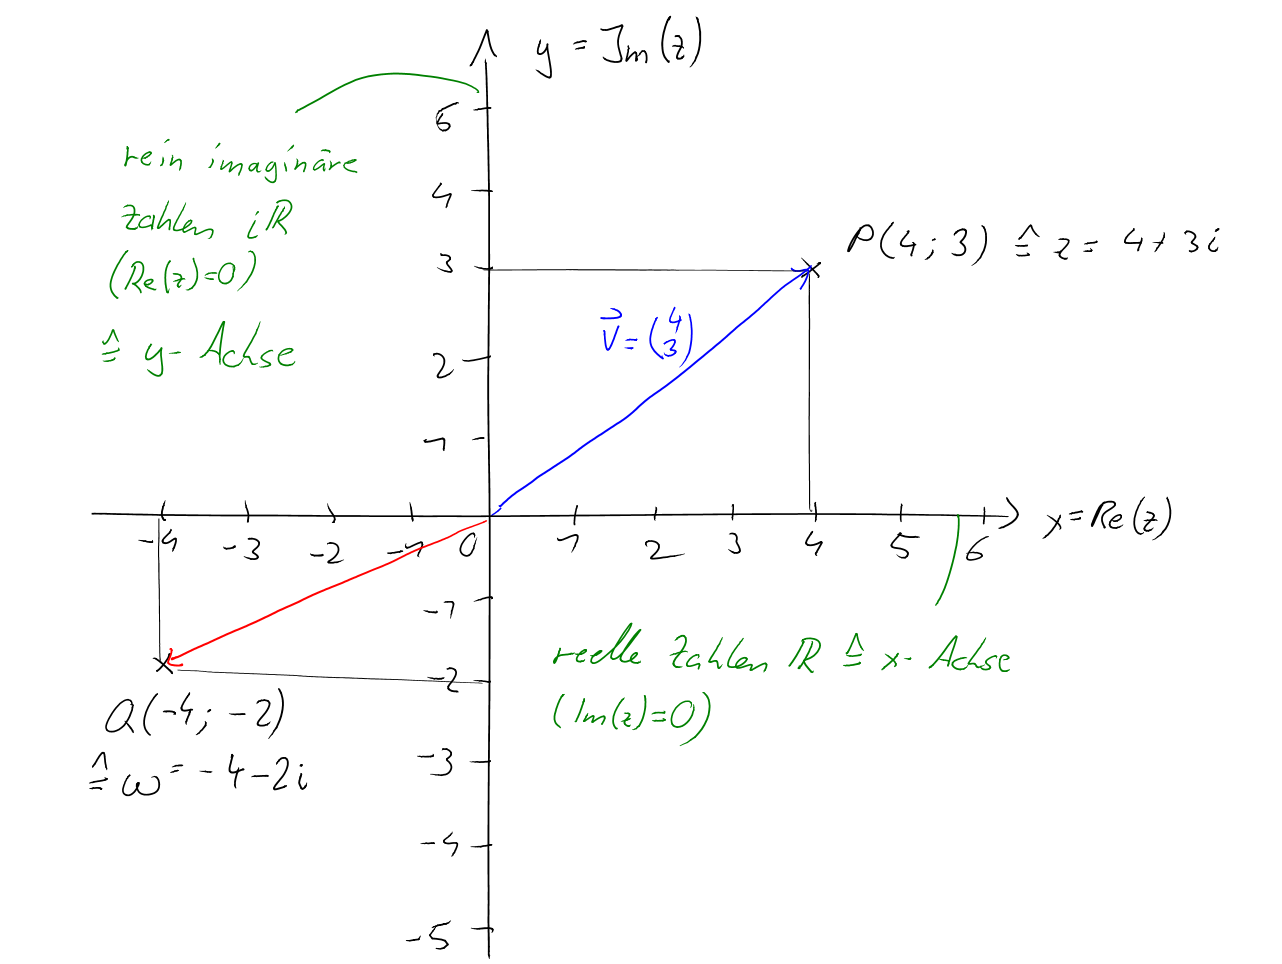 y = Im(z)
6
rein imaginäre
zahlen iℝ
(Re(z)=0)
≙ y-Achse
4
3
P(4; 3) ≙ z = 4+3i
v⃗ = (4 3)
2
1
-4 -3 -2 -1 0 1 2 3 4 5 6
x=Re(z)
-1
reelle Zahlen ℝ ≙ x-Achse
(Im(z)=0)
-2
Q(-4; -2)
≙ ω = -4-2i
-3
-4
-5